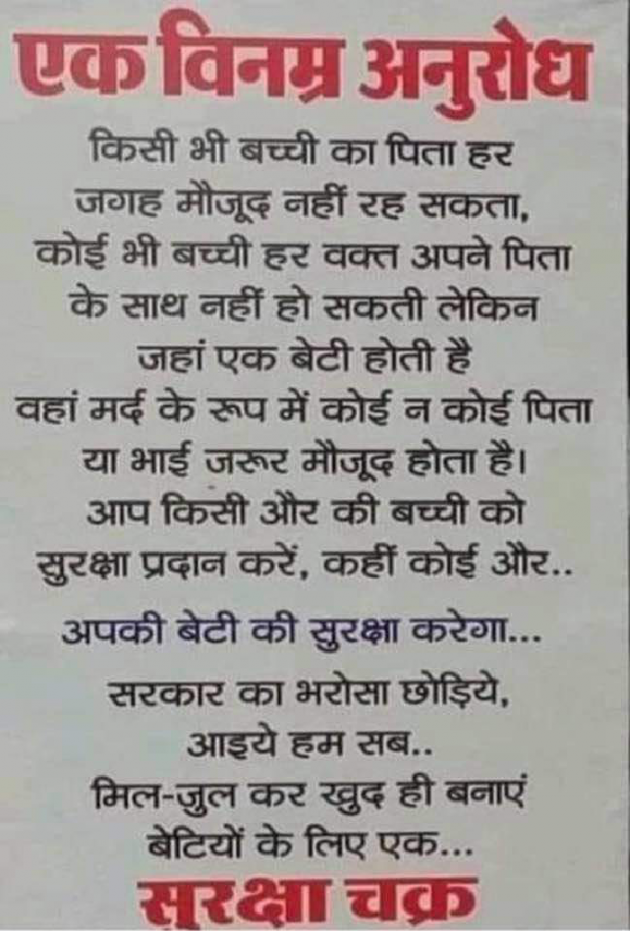 एक विनम्र अनुरोध
किसी भी बच्ची का पिता हर
जगह मौजूद नहीं रह सकता,
कोई भी बच्ची हर वक्त अपने पिता
के साथ नहीं हो सकती लेकिन
जहां एक बेटी होती है
वहां मर्द के रूप में कोई न कोई पिता
या भाई जरूर मौजूद होता है।
आप किसी और की बच्ची को
सुरक्षा प्रदान करें, कहीं कोई और..
अपकी बेटी की सुरक्षा करेगा...
सरकार का भरोसा छोड़िये,
आइये हम सब..
मिल-जुल कर खुद ही बनाएं
बेटियों के लिए एक...
सुरक्षा चक्र